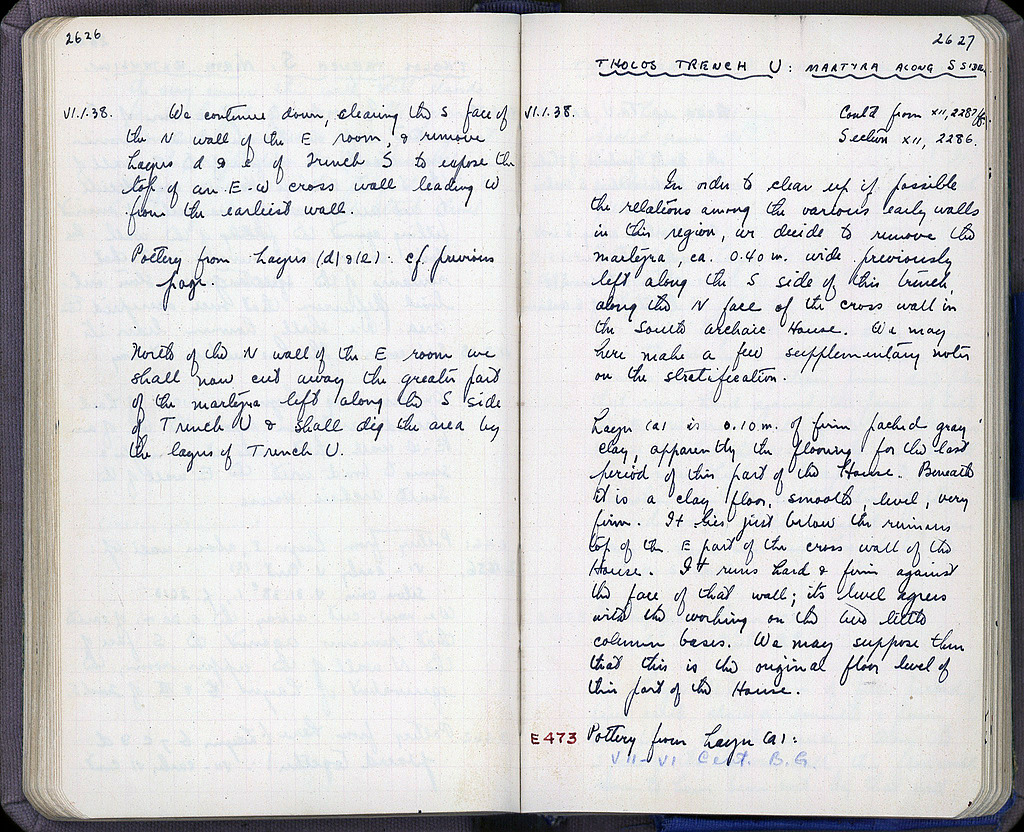 2626
VI.1.38. We continue down, clearing the S face of
the N wall of the E room, & remove
Layers d & e of Trench S to expose the
top of an E-W cross wall leading W
from the earliest wall.
Pottery from Layers (d) & (e): cf. previous
page.
North of the N wall of the E room we
shall now cut away the greater part
of the martyra left along the S side
of Trench U & shall dig the area by
the layers of Trench U.
2627
THOLOS TRENCH U: MARTYRA ALONG S SIDE
VI.1.38. Cont'd from XII, 2287 ff.
Section XII, 2286.
In order to clear up if possible
the relations among the various early walls
in this region, we decide to remove the
martyra, ca. 0.40 m. wide previously
left along the S side of this trench,
along the N face of the cross wall in
the South Archaic House. We may
here make a few supplementary notes
on the stratification.
Layer (a) is 0.10 m. of firm packed gray
clay, apparently the flooring for the last
period of this part of the House. Beneath
it is a clay floor, smooth, level, very
firm. It lies just below the remains
top of the E part of the cross wall of the
House. It runs hard & firm against
the face of that wall; its level agrees
with the working on the two little
column bases. We may suppose then
that this is the original floor level of
this part of the House.
E473 Pottery from Layer (a):
VII-VI Cent. B.C.